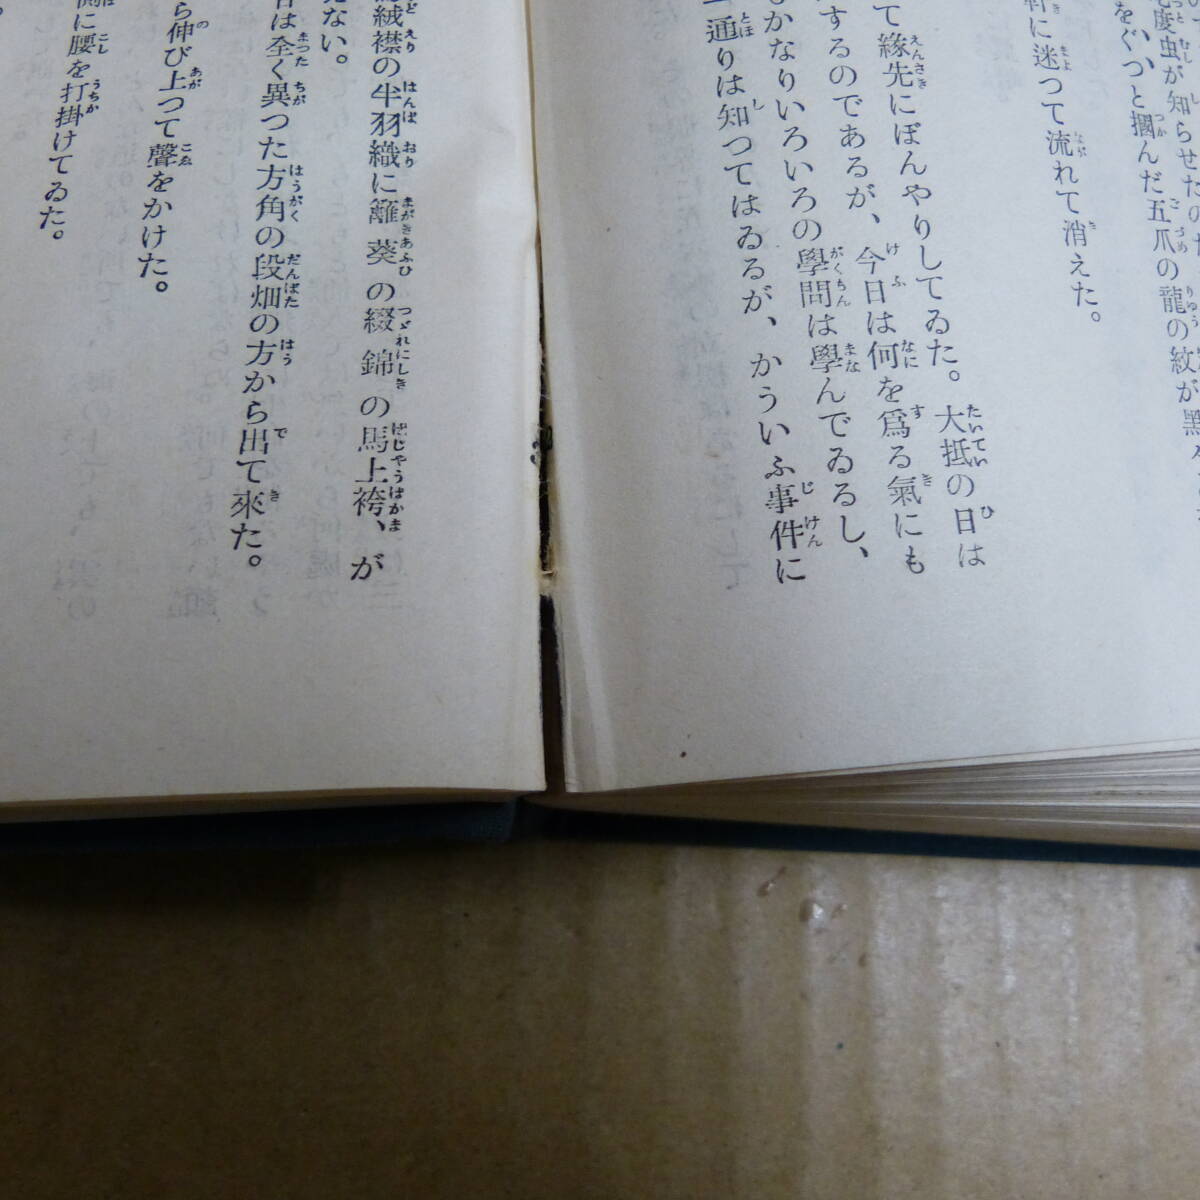 度虫が知らせたのだ
をぐつと摑んだ五爪の龍の紋が黑
軒に迷つて流れて消えた。
て緣先にぼんやりしてゐた。大抵の日は
するのであるが、今日は何を爲る氣にも
かなりいろいろの學問は學んでゐるし、
一通りは知つてはゐるが、かういふ事件に
絨襟の半羽織に籬葵の綴錦の馬上袴、が
ない。
は全く異つた方角の段畑の方から出て來た。
ら伸び上つて聲をかけた。
側に腰を打掛けてゐた。